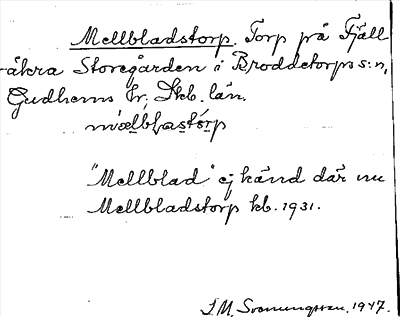 Mellbladstorp. Torp på Fjäll
-åkra Storegården i Broddetorps s:n,
Gudhems hr, Skb. län.
"Mellblad" ej känd där nu
Mellbladstorp kb. 1931.
1947.